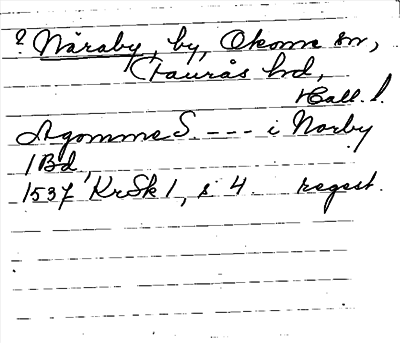 ? Näraby, by, Okome sn,
Faurås hd,
Hall. l.
Agomme S. --- i Norby
1 Bd
1537 KrSk 1, s 4 regest.